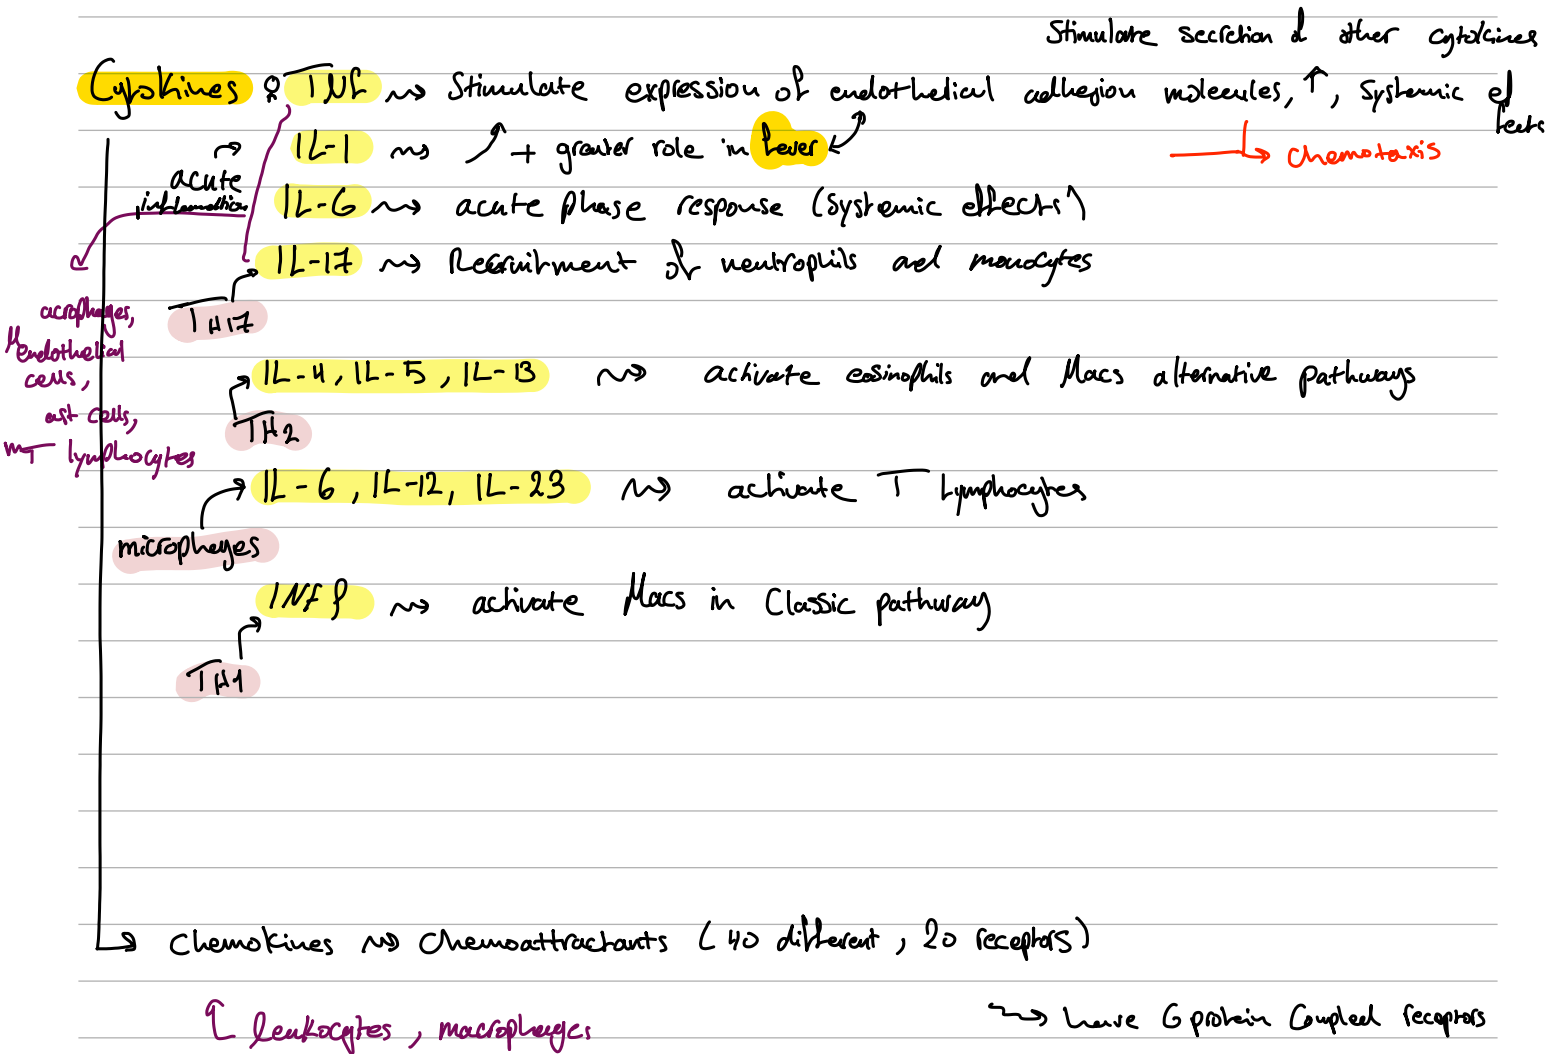 Stimulate secretion of other cytokines
Cytokines : TNF ⇝ Stimulate expression of endothelical adhesion molecules, ↑, Systemic effects
→ chemotaxis
acute inflamation → IL-1 ⇝ ↗ + greater role in fever
IL-6 ⇝ acute phase response (systemic effects)
IL-17 ⇝ Recruitment of neutrophils and monocytes
TH17
Macrophages,
endothelial
cells,
mast cells,
T lymphocytes
IL-4, IL-5, IL-13 ⇝ activate eosinophils and Macs alternative pathways
TH2
IL-6, IL-12, IL-23 ⇝ activate T Lymphocytes
microphages
INF γ ⇝ activate Macs in Classic pathway
TH1
→ Chemokines ⇝ Chemoattractants (40 different, 20 receptors)
leukocytes, macrophages
⇝ have G protein Coupled receptors